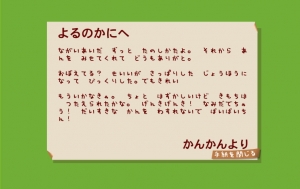 よるのかにへ
ながいあいだ ずっと たのしかたよ。 それから あ
んを みせてくれて どうもありがと。
おぼえてる? せいいが さっぱりした じょうほうに
なって びっくりした。でもきれい
もういかなきゃ。 ちょと はずかしいけど きもちは
つたえられたかな。 げんきげんき! なみだでちゃ
う! だいすきな かんを わすれないで ばいばいち
ん!
かんかんより
手紙を閉じる